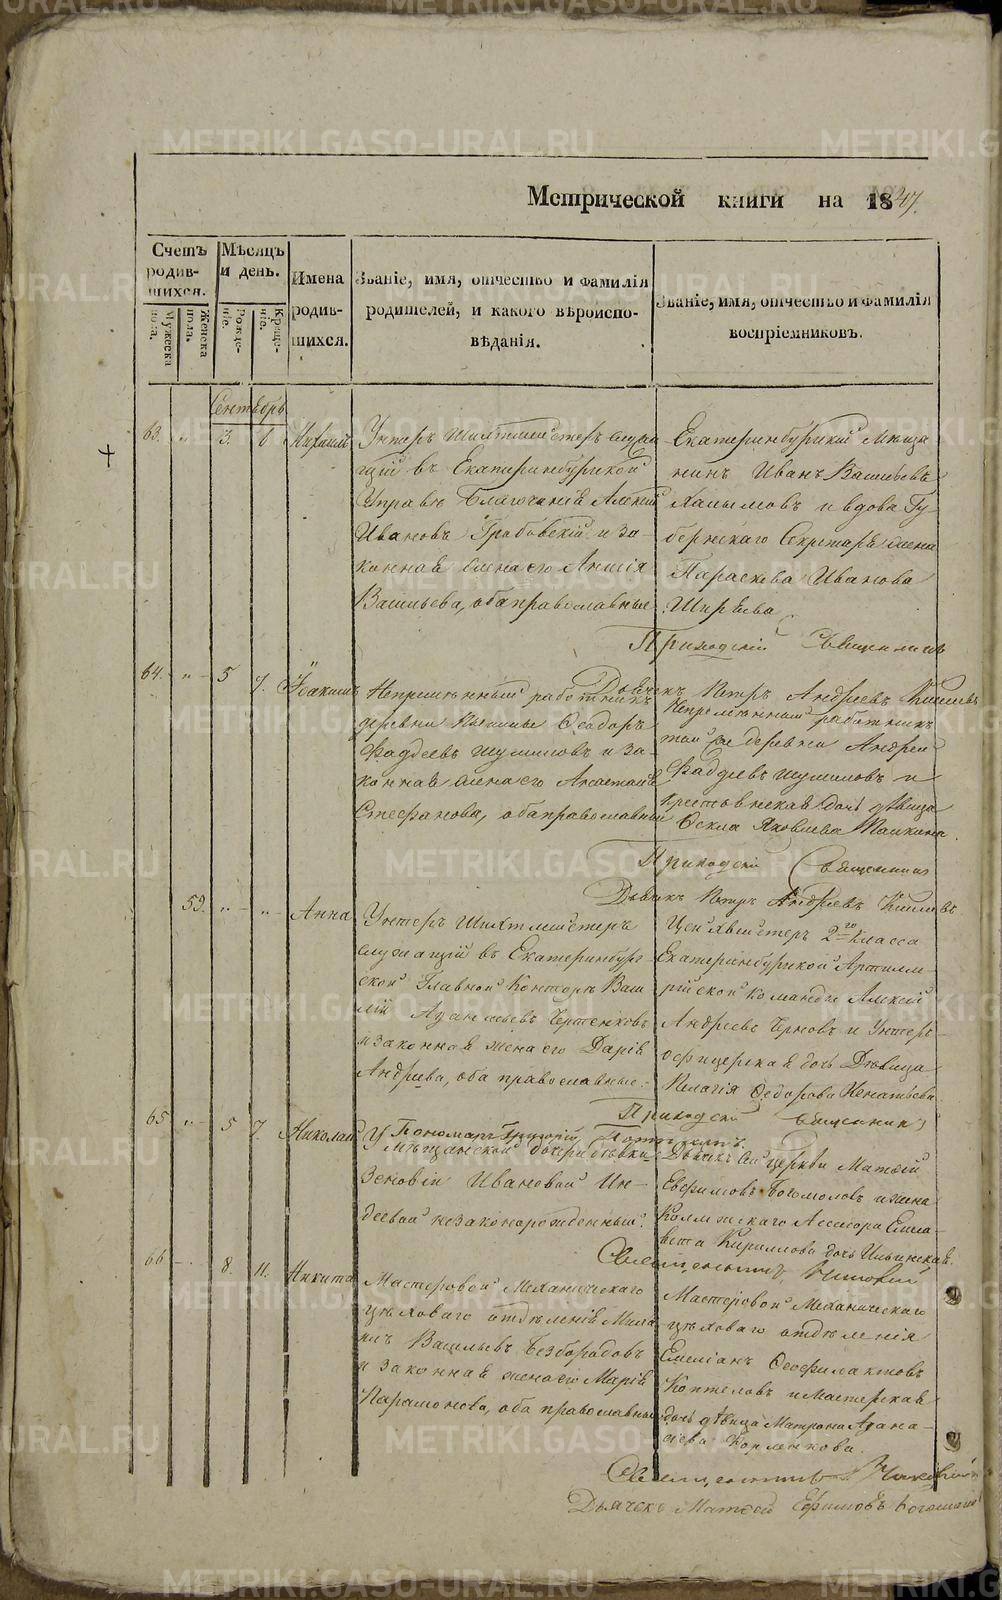 METRIKI.GASO-URAL.RU
Метрической книги на 1847.
Счетъ родившихся.
Мужеска пола.
Женска пола.
Мѣсяцъ и день.
Рожденіе.
Крещеніе.
Имена родившихся.
Званіе, имя, отчество и фамилія родителей, и какого вѣроисповѣданія.
Званіе, имя, отчество и фамилія воспріемниковъ.
Сентябрь
63. " 3. 6 Михаилъ
Унтеръ Шихтмейстеръ служа
щій въ Екатеринбургской
Управѣ Благочинія Алексѣй
Ивановъ Грабовскій и за
конная жена его
Васильева, оба православные
Екатеринбургскій Мѣща
нинъ Иванъ Васильевъ
и вдова Гу
бернскаго Секретаря жена
Параскева Иванова
Ширяева
Приходскій Священникъ
Дьячекъ Петръ Андреевъ
64. " 5 7. Іоакимъ
Непремѣнный работникъ
деревни Ѳеодоръ
Фадѣевъ Шумиловъ и за
конная жена его Анастасія
Стефанова, оба православные
Непремѣнный работникъ
той же деревни Андрей
Фаддѣевъ Шумиловъ и
дочь дѣвица
Ѳекла Яковлева
Приходскій Священникъ
Дьячекъ Петръ Андреевъ
59. " " Анна
Унтеръ Шихтмейстеръ
служащій въ Екатеринбург-
ской Главной Конторѣ Васи
лій
и законная жена его Дарія
Андреева, оба православные.
2го Класса
Екатеринбургской Артилле-
рійской команды Алексѣй
Андреевъ Черновъ и Унтеръ
офицерская дочь Дѣвица
Пелагія Ѳедорова
Приходскій Священникъ
Пономарь Григорій
65 " 5 7. Николай
У Мѣщанской дочери дѣвки
Зеновіи Ивановой Ин-
деевой незаконорожденный.
Дьячекъ сей церкви Матвѣй
Евфимовъ Богомоловъ и жена
Коллежскаго Ассесора Елиса-
вета Кириллова дочь Ильинская.
Священникъ
66 8. 11. Никита
Мастеровой Механическаго
цѣховаго отдѣленія
Васильевъ Безбородовъ
и законная жена его Марія
Парамонова, оба православные
Мастеровой Механическаго
цѣховаго отдѣленія
Емеліанъ Ѳеофилактовъ
Коптеловъ и Мастерская
дочь дѣвица Матрона Афана-
сіева
Священникъ
Дьячекъ Матвѣй Ефимовъ Богомоловъ